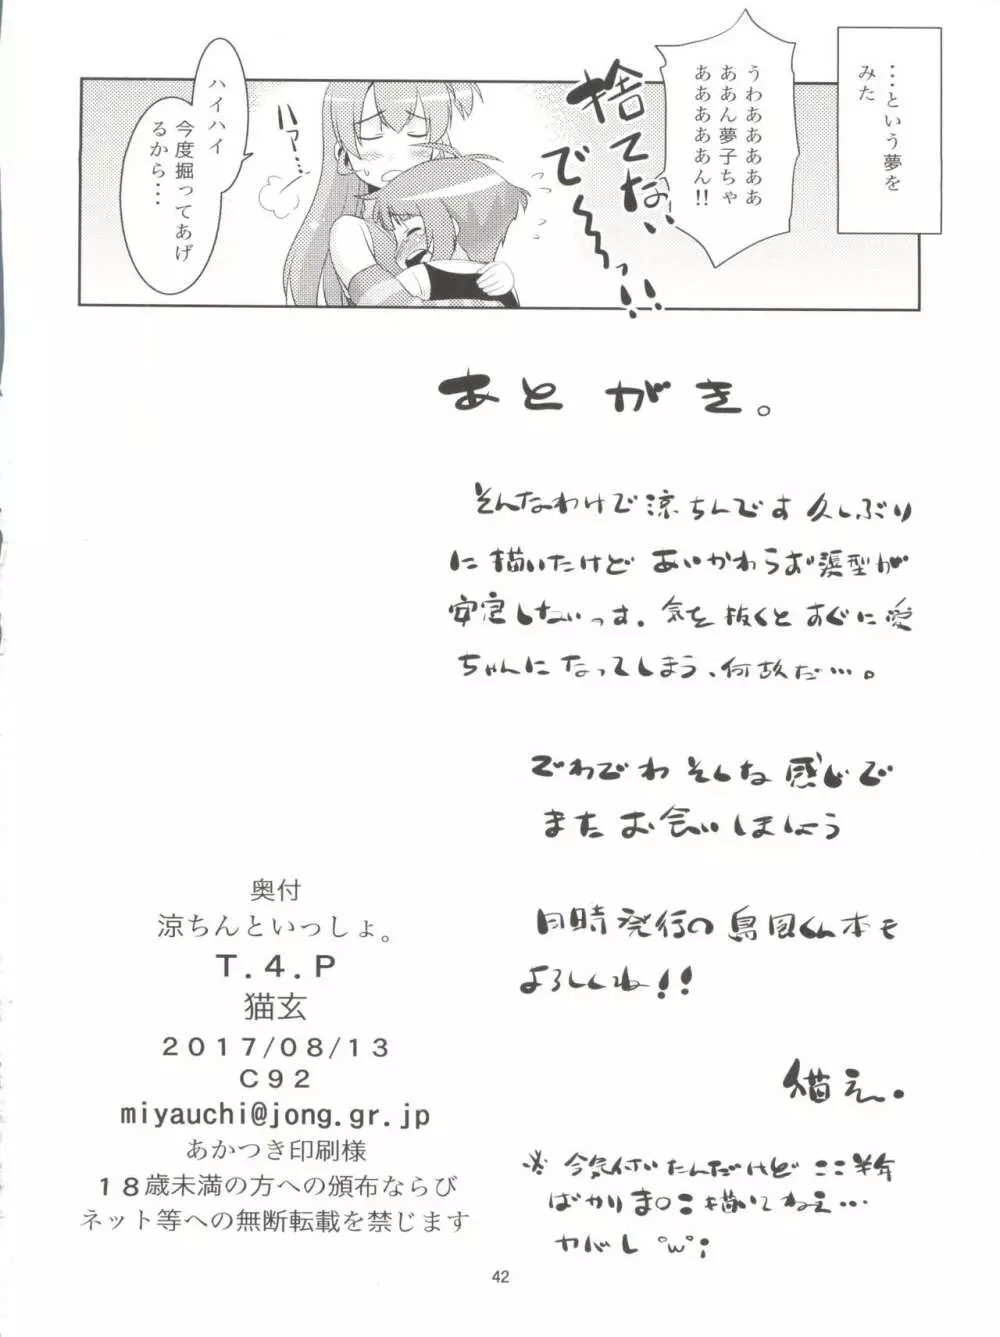 ・・・という夢を
みた
うわああああああ
ああん夢子ちゃ
ああああああん!!
捨てないでぇ〜〜っ!!
ハァ…
ハイハイ
今度掘ってあげ
るから・・・
あとがき。
そんなわけで涼ちんです久しぶり
に描いたけどあいかわらず髪型が
安定しないっす。気を抜くとすぐに愛
ちゃんになってしまう、何故だ…。
でわでわそんな感じで
またお会いしましょう
同時発行の島風くん本も
よろしくね!!
猫玄。
※今気付いたんだけどここ半年
ばかりま○こ描いてねえ…
ヤバし °w°;
奥付
涼ちんといっしょ。
T.4.P
猫玄
2017/08/13
C92
miyauchi@jong.gr.jp
あかつき印刷様
18歳未満の方への頒布ならび
ネット等への無断転載を禁じます
42